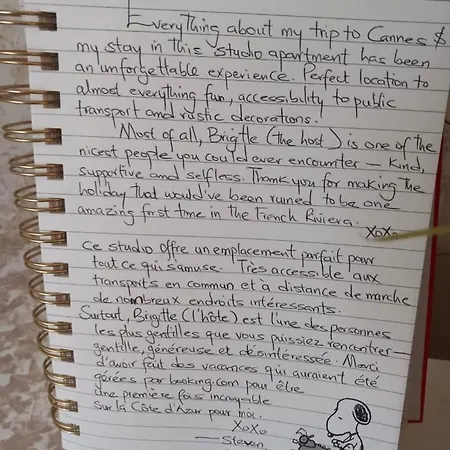 Everything about my trip to Cannes &
my stay in this studio apartment has been
an unforgettable experience. Perfect location to
almost everything fun, accessibility to public
transport and rustic decorations.
Most of all, Brigitte (the host) is one of the
nicest people you could ever encounter — kind,
supportive and selfless. Thank you for making the
holiday that would've been ruined to be one
amazing first time in the French Riviera.
XoXo
Ce studio offre un emplacement parfait pour
tout ce qui s'amuse. Très accessible aux
transports en commun et à distance de marche
de nombreux endroits intéressants.
Surtout, Brigitte (l'hôte) est l'une des personnes
les plus gentilles que vous puissiez rencontrer —
gentille, généreuse et désintéressée. Merci
d'avoir fait des vacances qui auraient été
gérées par booking.com pour être
une première fois incroyable
sur la Côte d'Azur pour moi.
XoXo
— Steven